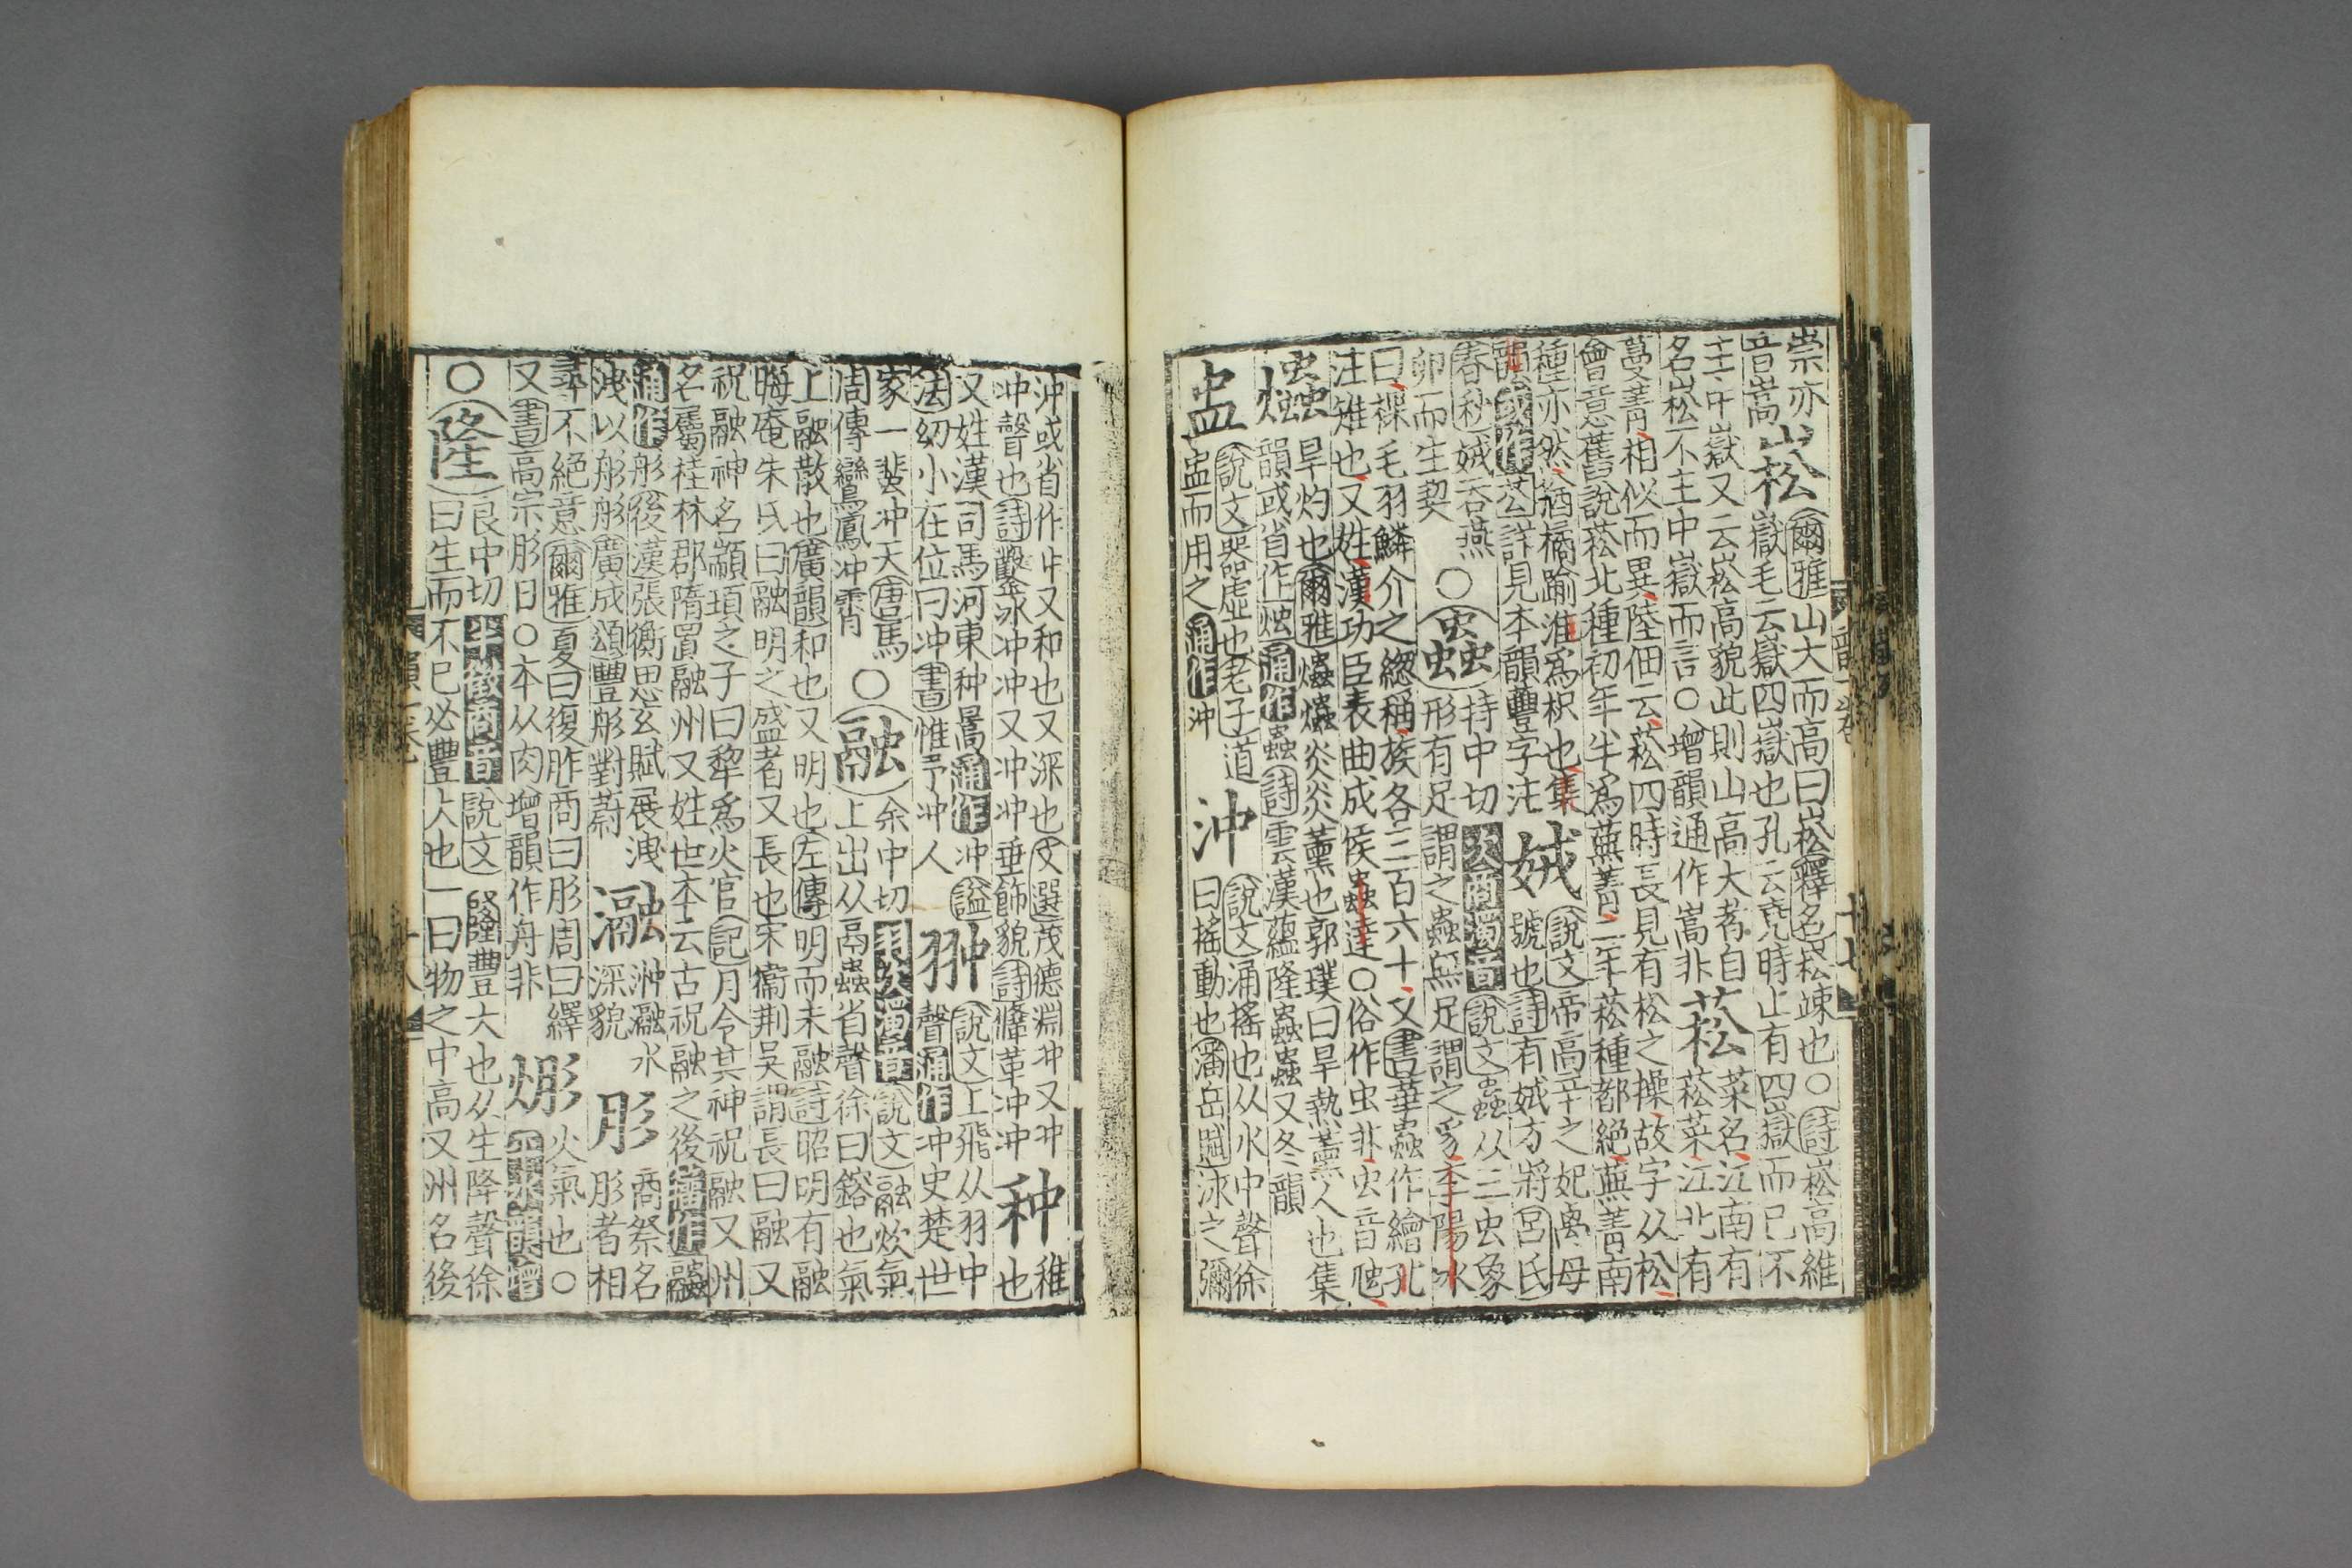 崇亦
音嵩
崧
爾雅山大而高曰崧釋名崧竦也○詩崧高維
嶽毛云嶽四嶽也孔云堯時止有四嶽而已不
主中嶽又云崧高貌此則山高大者自
名崧不主中嶽而言○增韻通作嵩非
菘
菜名江南有
菘菜江北有
蔓菁相似而異陸佃云菘四時長見有松之操故字从松
會意舊說菘北種初年半爲蕪菁二年菘種都絕蕪菁南
種亦然猶橘踰淮爲枳也集
韻或作蘴詳見本韻豐字注
娀
說文帝高辛之妃偰母
號也詩有娀方將呂氏
春秋娀吞燕
卵而生契
○蟲
持中切次商濁音說文蟲从三虫象
形有足謂之蟲無足謂之豸李陽冰
曰裸毛羽鱗介之緫稱族各三百六十又書華蟲作繪孔
注雉也又姓漢功臣表曲成侯蟲達○俗作虫非虫音虺
爞
旱灼也爾雅爞爞炎炎薰也郭璞曰旱熱薰人也集
韻或省作烛通作蟲詩雲漢蘊隆蟲蟲又冬韻
盅
說文器虛也老子道
盅而用之通作沖
沖
說文涌搖也从水中聲徐
曰搖動也潘岳賦泳之彌
沖或省作中又和也又深也文選茂德淵沖又沖
沖聲也詩鑿冰沖沖又沖沖垂飾貌詩鞗革沖沖
种
稚也
又姓漢司馬河東种暠通作沖諡
法幼小在位曰沖書惟予沖人
翀
說文上飛从羽中
聲通作沖史楚世
家一蜚沖天唐馬
周傳鸞鳳沖霄
○融
余中切羽次濁音說文融炊氣
上出从鬲蟲省聲徐曰鎔也氣
上融散也廣韻和也又明也左傳明而未融詩昭明有融
晦庵朱氏曰融明之盛者又長也宋衞荆吳謂長曰融又
祝融神名顓頊之子曰犂爲火官記月令其神祝融又州
名屬桂林郡隋置融州又姓世本云古祝融之後籒作䖝
通作肜後漢張衡思玄賦展洩
洩以肜肜廣成頌豐肜對蔚
瀜
沖瀜水
深貌
肜
商祭名
肜者相
尋不絕意爾雅夏曰復胙商曰肜周曰繹
又書高宗肜日○本从肉增韻作舟非
烿
火氣也○
平水韻增
○隆
良中切半徵商音說文隆豐大也从生降聲徐
曰生而不已必豐大也一曰物之中高又州名後